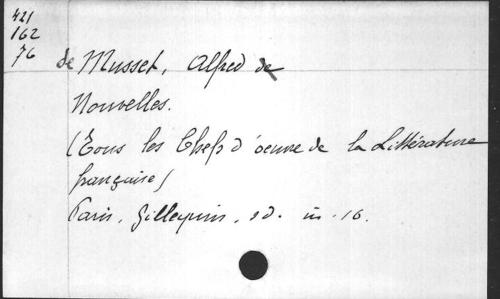 421
162
76
de Musset, Alfred de
Nouvelles.
(Tous les Chefs d'oeuvre de la Littérature
française)
Paris, Gillequin, sd. in-16.